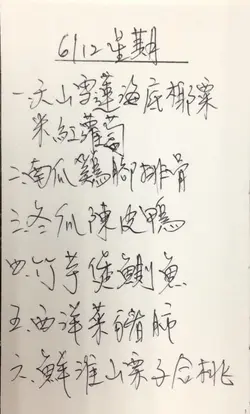 6/12星期
一天山雪蓮海底椰粟
米紅蘿蔔
二南瓜鷄腳排骨
三冬瓜陳皮鴨
四竹芋煲鯽魚
五西洋菜豬𦟌
六鮮淮山栗子合桃